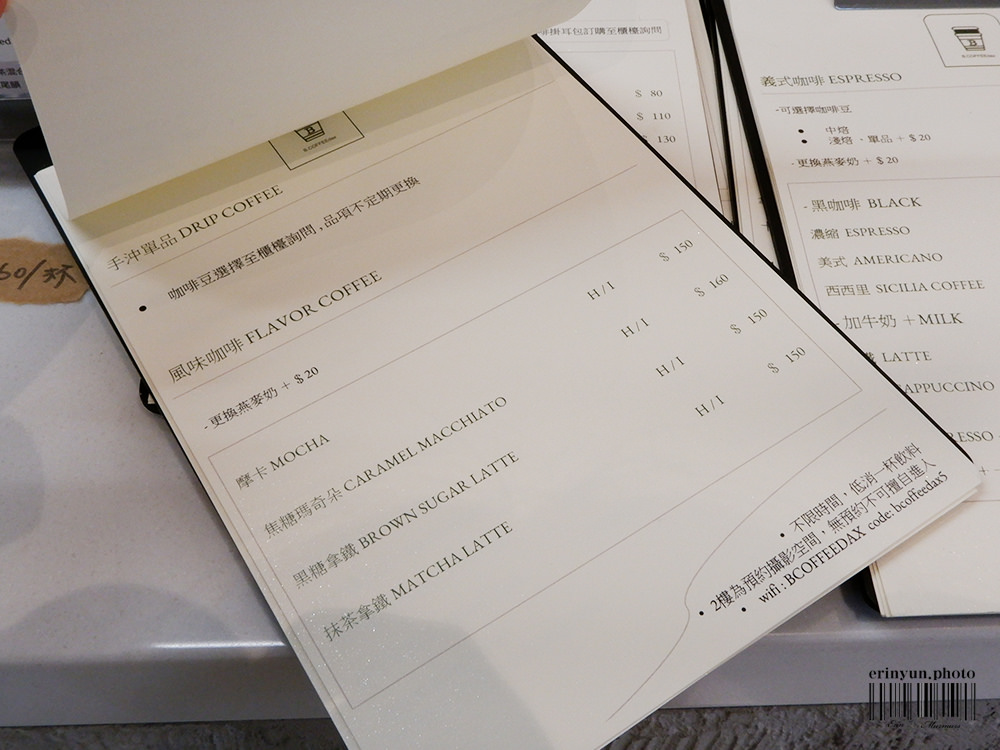 B.COFFEEdax
手沖單品 DRIP COFFEE
• 咖啡豆選擇至櫃檯詢問,品項不定期更換
風味咖啡 FLAVOR COFFEE
- 更換燕麥奶 + $ 20
摩卡 MOCHA H / I $ 150
焦糖瑪奇朵 CARAMEL MACCHIATO H / I $ 160
黑糖拿鐵 BROWN SUGAR LATTE H / I $ 150
抹茶拿鐵 MATCHA LATTE H / I $ 150
• 不限時間,低消一杯飲料
• 2樓為預約攝影空間,無預約不可擅自進入
• wifi : BCOFFEEDAX code: bcoffeedax5
掛耳包訂購至櫃檯詢問
$ 80
$ 110
$ 130
義式咖啡 ESPRESSO
-可選擇咖啡豆
• 中焙
• 淺焙 - 單品 + $ 20
- 更換燕麥奶 + $ 20
- 黑咖啡 BLACK
濃縮 ESPRESSO
美式 AMERICANO
西西里 SICILIA COFFEE
- 加牛奶 + MILK
LATTE
APPUCCINO
RESSO
/杯
erinyun.photo